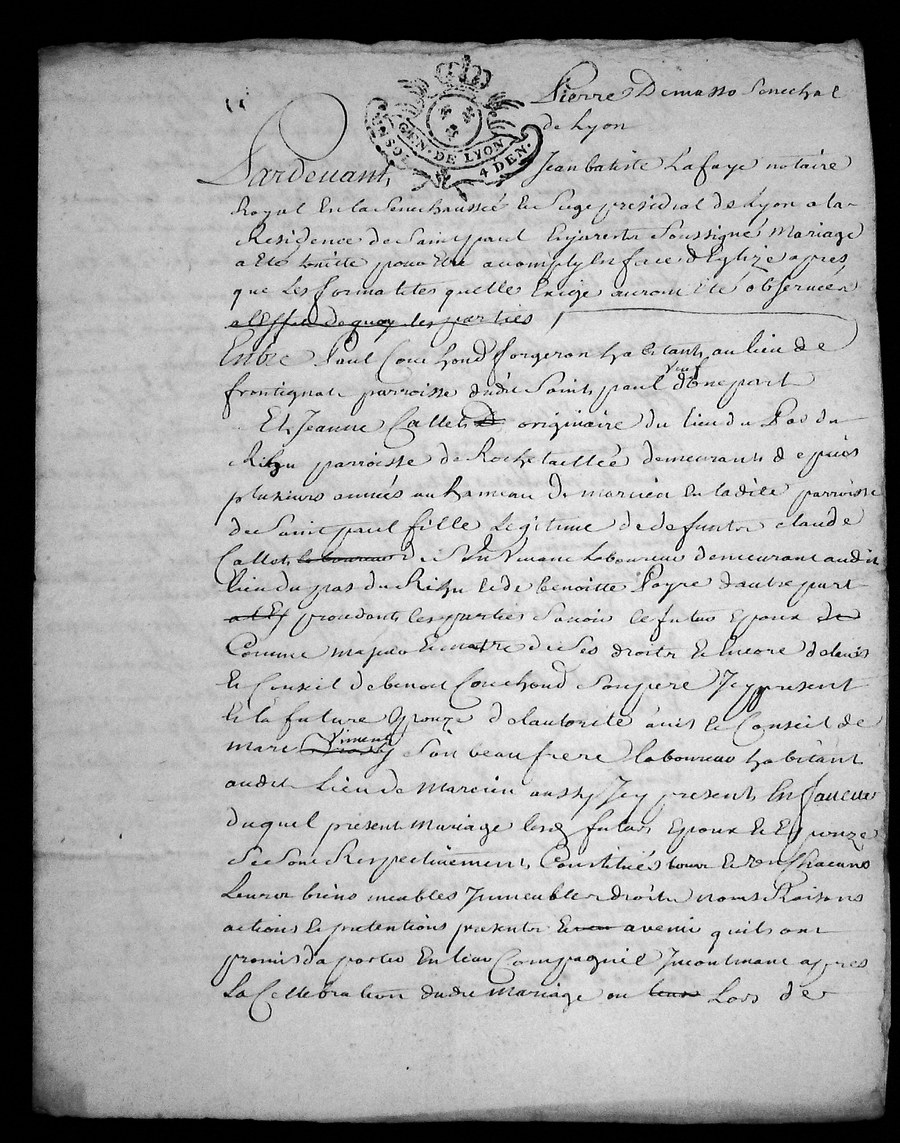 Pierre Demasso Senechal
de Lyon
GEN. DE LYON
4 DEN.
Pardevant Jean batiste Lafaye notaire
Royal En la Senechaussée Et Siege presidial de Lyon a la
Residence de Saint paul En jarest Soussigné Mariage
a Eté traité pour être accomply En face d'Eglize apres
que Les formalites quelle Exige auront été observées
a l'Effet de quoy les parties
Entre Paul Couchoud forgeron habitant au lieu de
frontignat parroisse dudit Saint paul d'une part
Et Jeanne Callet originaire du lieu du Pas du
Rihu parroisse de Rochetaillée demeurant depuis
plusieurs années au hameau de marcieu En ladite parroisse
de Saint paul fille Legitime de defunt claude
Callet laboureur de Son Vivant Laboureur demeurant audit
lieu du pas du Rihu et de benoitte Payre d'autre part
procedant les parties Savoir le futur Epoux
Comme majeur Et maitre de Ses droits Et Encore de lavis
Et Conseil de benoit Couchoud Son pere Icy present
Et la future Epouze de lautorité avis Et Conseil de
marc Son beau frere laboureur habitant
audit Lieu de Marcieu aussy Icy present En faveur
duquel present Mariage lesd futurs Epoux Et Epouze
Se Sont Respectivement Constitués tous Et Chacuns
Leurs biens meubles Immeubles droits noms Raisons
actions Et pretentions presents Et avenir quils ont
promis da porter En leur Compagnie Incontinant apres
La Cellebration dudit Mariage ou leur Lors de